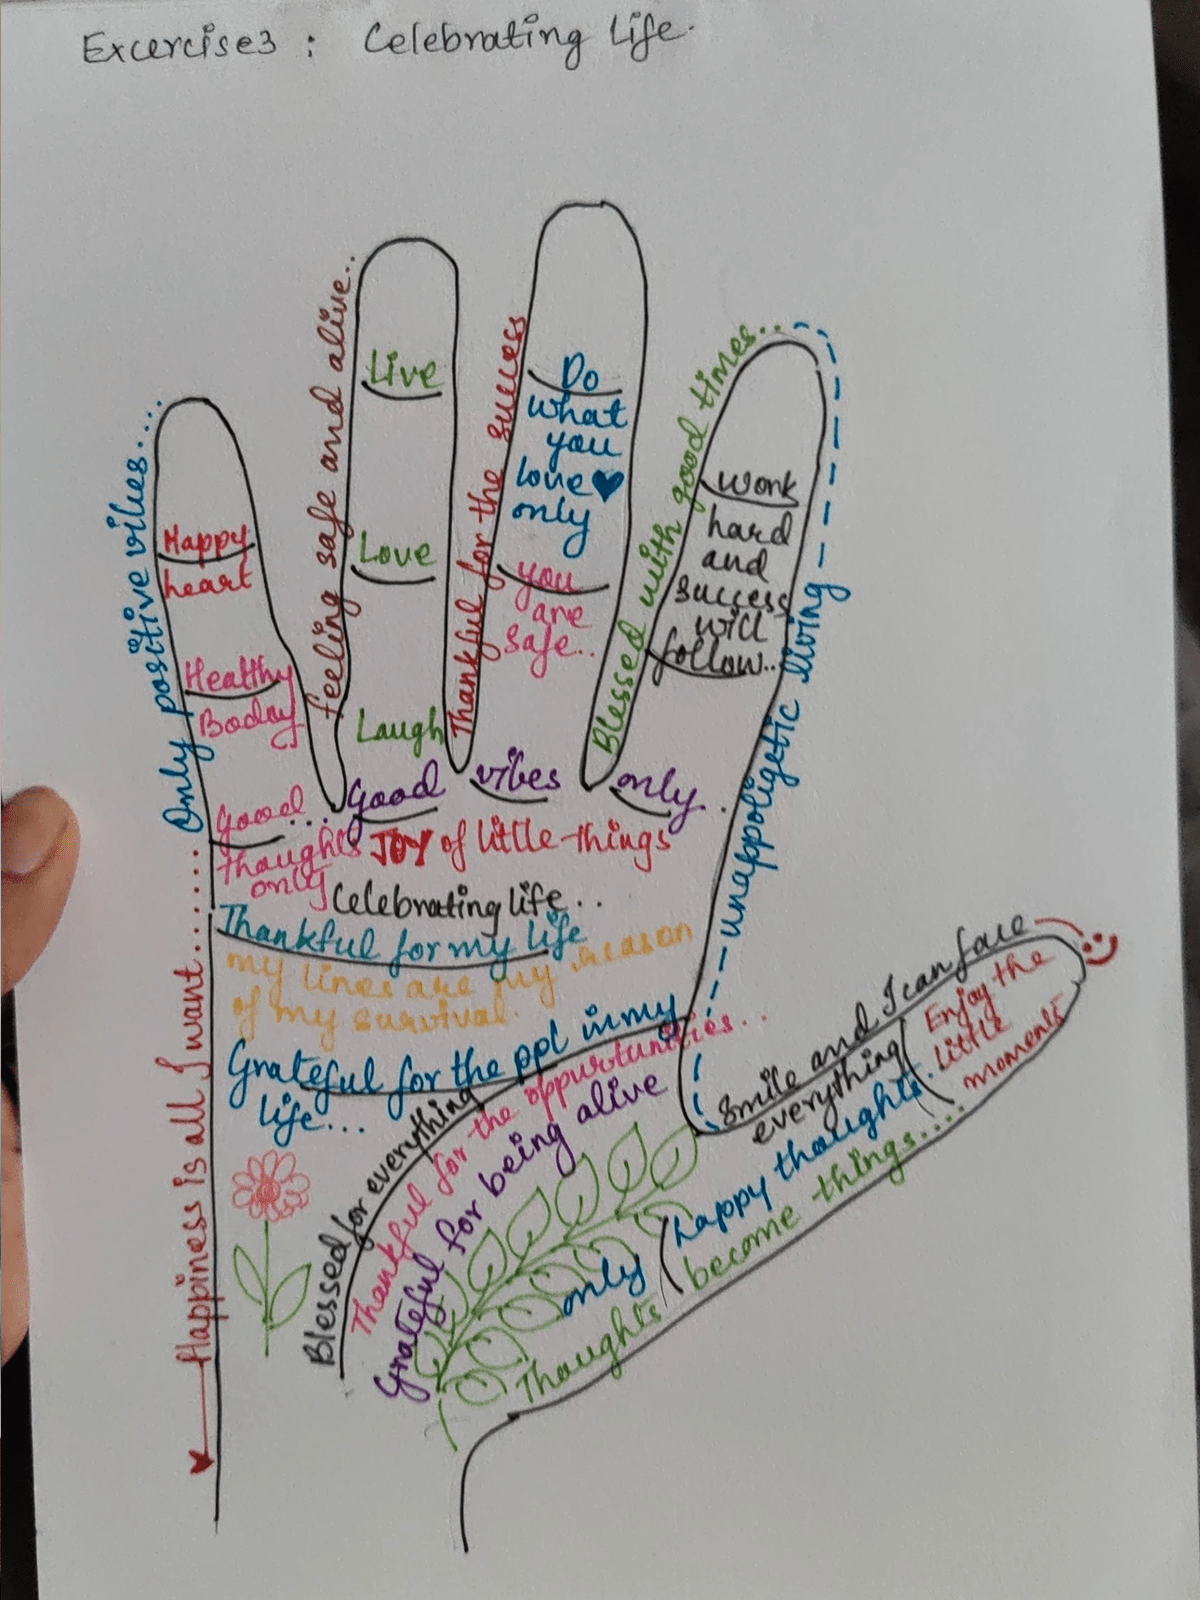 Excercise3 : Celebrating life.
Only positive vibes....
Happy
heart
Healthy
Boday
Good....
thoughts
only
feeling safe and alive..
Live
Love
Laugh
Thankful for the success
Do
what
you
love
only
you
are
safe..
Blessed with good times...
work
hard
and
success
will
follow...
unappoligetic living
Good vibes only.
JOY of little things
Celebrating life..
Thankful for my life
my lines are my reason
of my survival.
Grateful for the ppl in my
life...
Happiness is all I want......
Blessed for everything
Thankful for the oppurtunities...
Grateful for being alive
Smile and I can face
everything
Enjoy the
little
moments
only happy thoughts.
Thoughts become things....